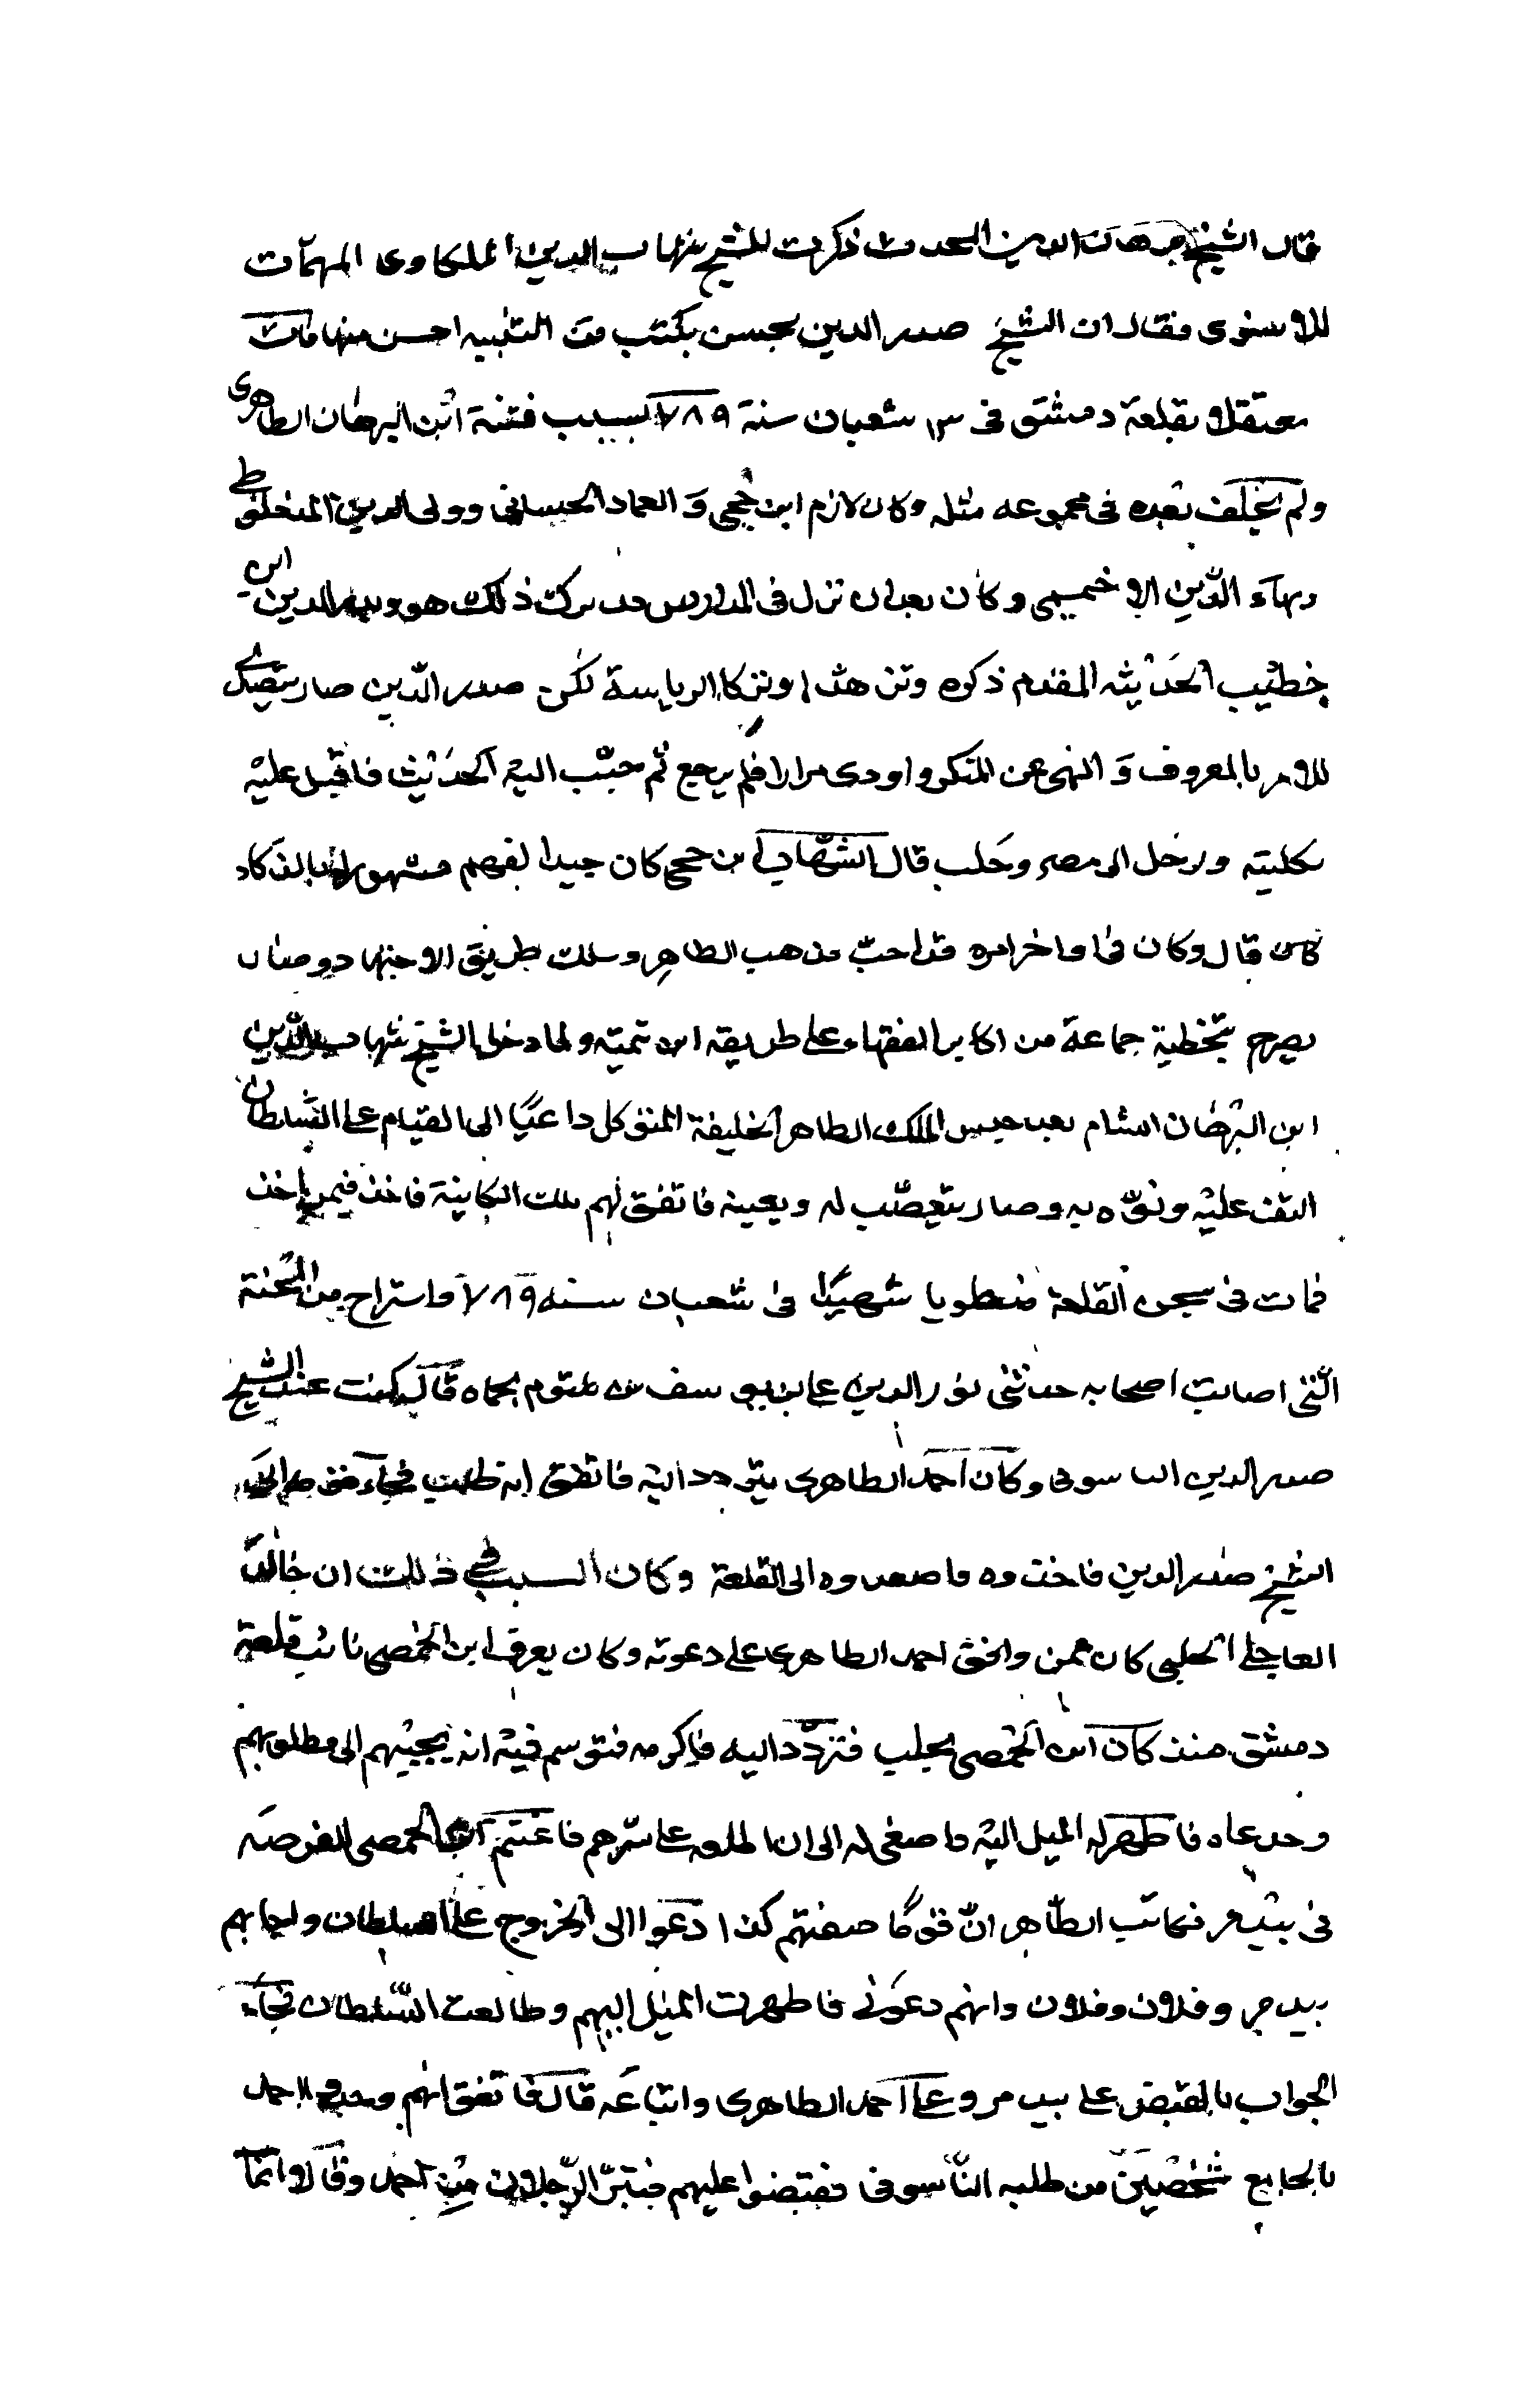 قال الشيخ برهان الدين المحدث ذكرت للشيخ شهاب الدين الملكاوى المهمّات
للاسنوى فقال ان الشيخ صدر الدين يحسن يكتب من التنبيه احسن منها مات
معتقلا بقلعة دمشق فى ١٣ شعبان سنة ٧٨٩ بسبب فتنة ابن البرهان الظاهرى
ولم يخلف بعده فى مجموعه مثله وكان لازم ابن حجى وَ العماد الحسبانى وولى الدين المنفلوطى
وبهآء الدّين الاخميمى وكان بعد ان نزل فى المدارس قد ترك ذلك هو وبدر الدين ابن
خطيب الحَديثه المقدم ذكره وتزهدا وتركا الرياسة لكن صدر الدّين صار يتصدى
للامر بالمعروف وَ النهى عن المنكر واودى مرارا فلم يرجع ثم حبّب اليه الحَديث فاقبل عليْه
بكليته ورحل الى مصر وحَلب قال الشهاب ابن حجى كان جيد الفهم مشهورا بالذكاء
قال وكان فى اواخر امره قد احبّ مذهب الظاهر وسلك طريق الاجتهاد وصار
يصرح بتخطية جماعة من اكابر الفقهاء على طريقه ابن تميته ولما دخل الشيخ شهاب الدّين
ابن البُرهان الشام بعد حبس الملك الظاهر الخليفة المتوكل داعيًا الى القيام على السّلطان
التف عليْه ونوّه به وصار يتعصّب له ويعينه فاتفق لهم تلك الكاينة فاخذ فيمن اخذ
فمات فى سجن القلعة مبطونا شهيدًا فى شعبان سنه ٧٨٩ واستراح من المحنة
الّتى اصابت اصحابه حدثنى نور الدين على بن يوسف بن مكتوم بحماه قال كنت عند الشيخ
صدر الدين الياسوفى وكان احمد الظاهرى يتردد اليه فاتفق انه طلب
الشيخ صدر الدين فاخذوه واصعدوه الى القلعة وكان السبب فى ذلك ان خالدًا
العاجلى الحلبى كان ممن وافق احمد الظاهرى على دعوته وكان يعرف ابن الحمصى نائب قلعة
دمشق منذ كان ابن الحمصى بحلب فتردّد اليه فاكرمه فتوسم فيْه انه يجيبهم الى مطلوبهم
ودعاه فاظهر له الميل اليْه واصغى له الى ان اطلعه على سّرهم فاغتنم ابن الحمصى الفرصَه
فى بيدمر فكاتب الظّاهر انّ قومًا صفتهم كذا دعوا الى الخروج على السلطان واجابهم
بيدمر وفلان وفلان وانهم دعَونى فاظهرت الميل اليهم وطالعت السّلطان فجآء
الجواب بالقبض على بيدمر وعلى احمد الظاهرى واتباعَه قال فاتفق انهم وجدوا احمد
بالجامع شخصَين من طلبه اليَاسوفى فقبضوا عليهم فتبرّا الرّجلان من احمد وقالا انما